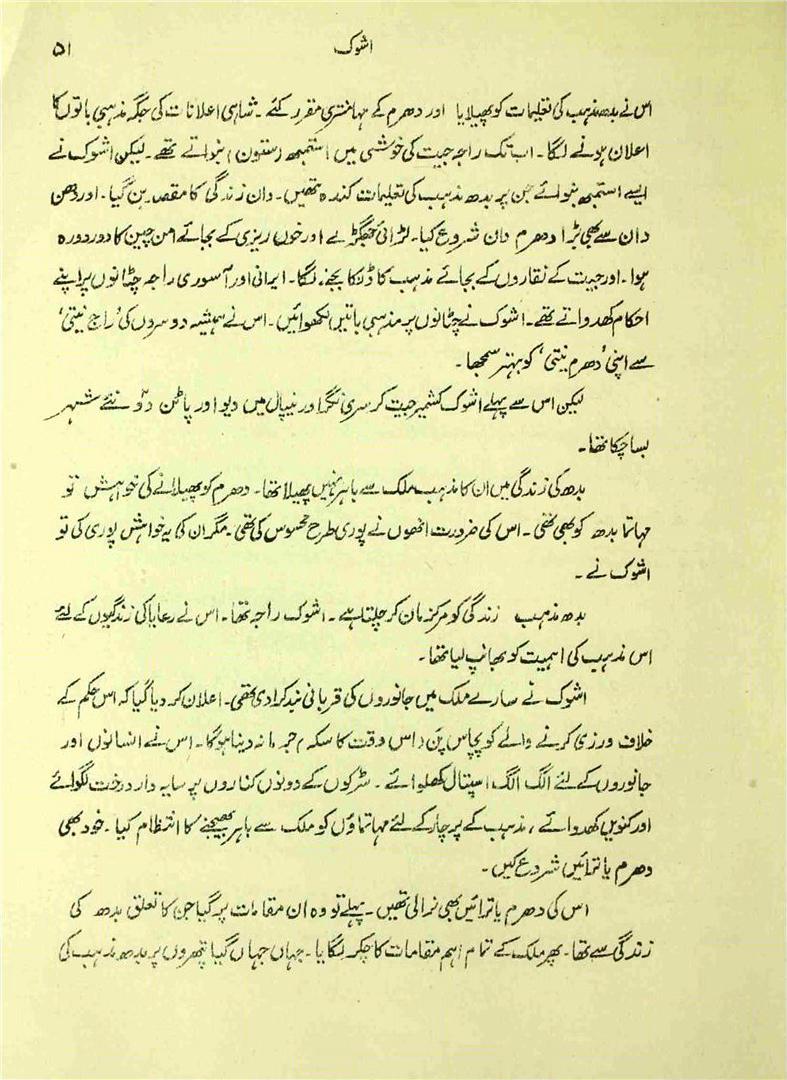 اشوک ۵۱
اس نے بدھ مذہب کی تعلیمات کو پھیلایا اور دھرم کے مہامنتری مقرر کئے۔ شاہی اعلانات کی جگہ مذہبی باتوں کا
اعلان ہونے لگا۔ اب تک راجہ جیت کی خوشی میں استمبھ (ستون) بنواتے تھے۔ لیکن اشوک نے
ایسے استمبھ بنوائے جن پر بدھ مذہب کی تعلیمات کندہ تھیں۔ دان زندگی کا مقصد بن گیا۔ اور دھن
دان سے بھی بڑا دھرم دان شروع کیا۔ لڑائی جھگڑے اور خوں ریزی کے بجائے امن چین کا دور دورہ
ہوا۔ اور جیت کے نقاروں کے بجائے مذہب کا ڈنکا بجنے لگا۔ ایرانی اور آسوری راجہ چٹانوں پر اپنے
احکام کھدواتے تھے۔ اشوک نے چٹانوں پر مذہبی باتیں لکھوائیں۔ اس نے ہمیشہ دوسروں کی ’راج نیتی‘
سے اپنی ’دھرم نیتی‘ کو بہتر سمجھا۔
لیکن اس سے پہلے اشوک کشمیر جیت کر سری نگر اور نیپال میں دیو اور پاٹن دو نئے شہر
بسا چکا تھا۔
بدھ کی زندگی میں ان کا مذہب ملک سے باہر نہیں پھیلا تھا۔ دھرم کو پھیلانے کی خواہش تو
مہاتما بدھ کو بھی تھی۔ اس کی ضرورت انھوں نے پوری طرح محسوس کی تھی۔ مگر ان کی یہ خواہش پوری کی تو
اشوک نے۔
بدھ مذہب زندگی کو مرکز مان کر چلتا ہے۔ اشوک راجہ تھا۔ اس نے رعایا کی زندگیوں کے لئے
اس مذہب کی اہمیت کو بھانپ لیا تھا۔
اشوک نے سارے ملک میں جانوروں کی قربانی بند کرا دی تھی۔ اعلان کر دیا گیا کہ اس حکم کے
خلاف ورزی کرنے والے کو پچاس پَن (اس وقت کا سکہ) جرمانہ دینا ہوگا۔ اس نے انسانوں اور
جانوروں کے لئے الگ الگ اسپتال کھلوائے۔ سڑکوں کے دونوں کناروں پر سایہ دار درخت لگوائے
اور کنویں کھدوائے، مذہب کے پرچار کے لئے مہاتماؤں کو ملک سے باہر بھیجنے کا انتظام کیا۔ خود بھی
دھرم یاترائیں شروع کیں۔
اس کی دھرم یاترائیں بھی نرالی تھیں۔ پہلے تو وہ ان مقامات پر گیا جن کا تعلق بدھ کی
زندگی سے تھا۔ پھر ملک کے تمام اہم مقامات کا چکر لگایا۔ جہاں جہاں گیا پتھروں پر بدھ مذہب کی